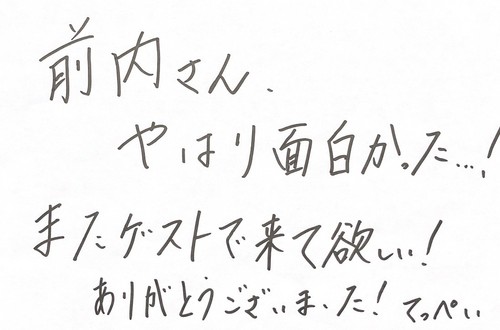 前内さん、
やはり面白かった…!
またゲストで来て欲しい!
ありがとうございました! てっぺい